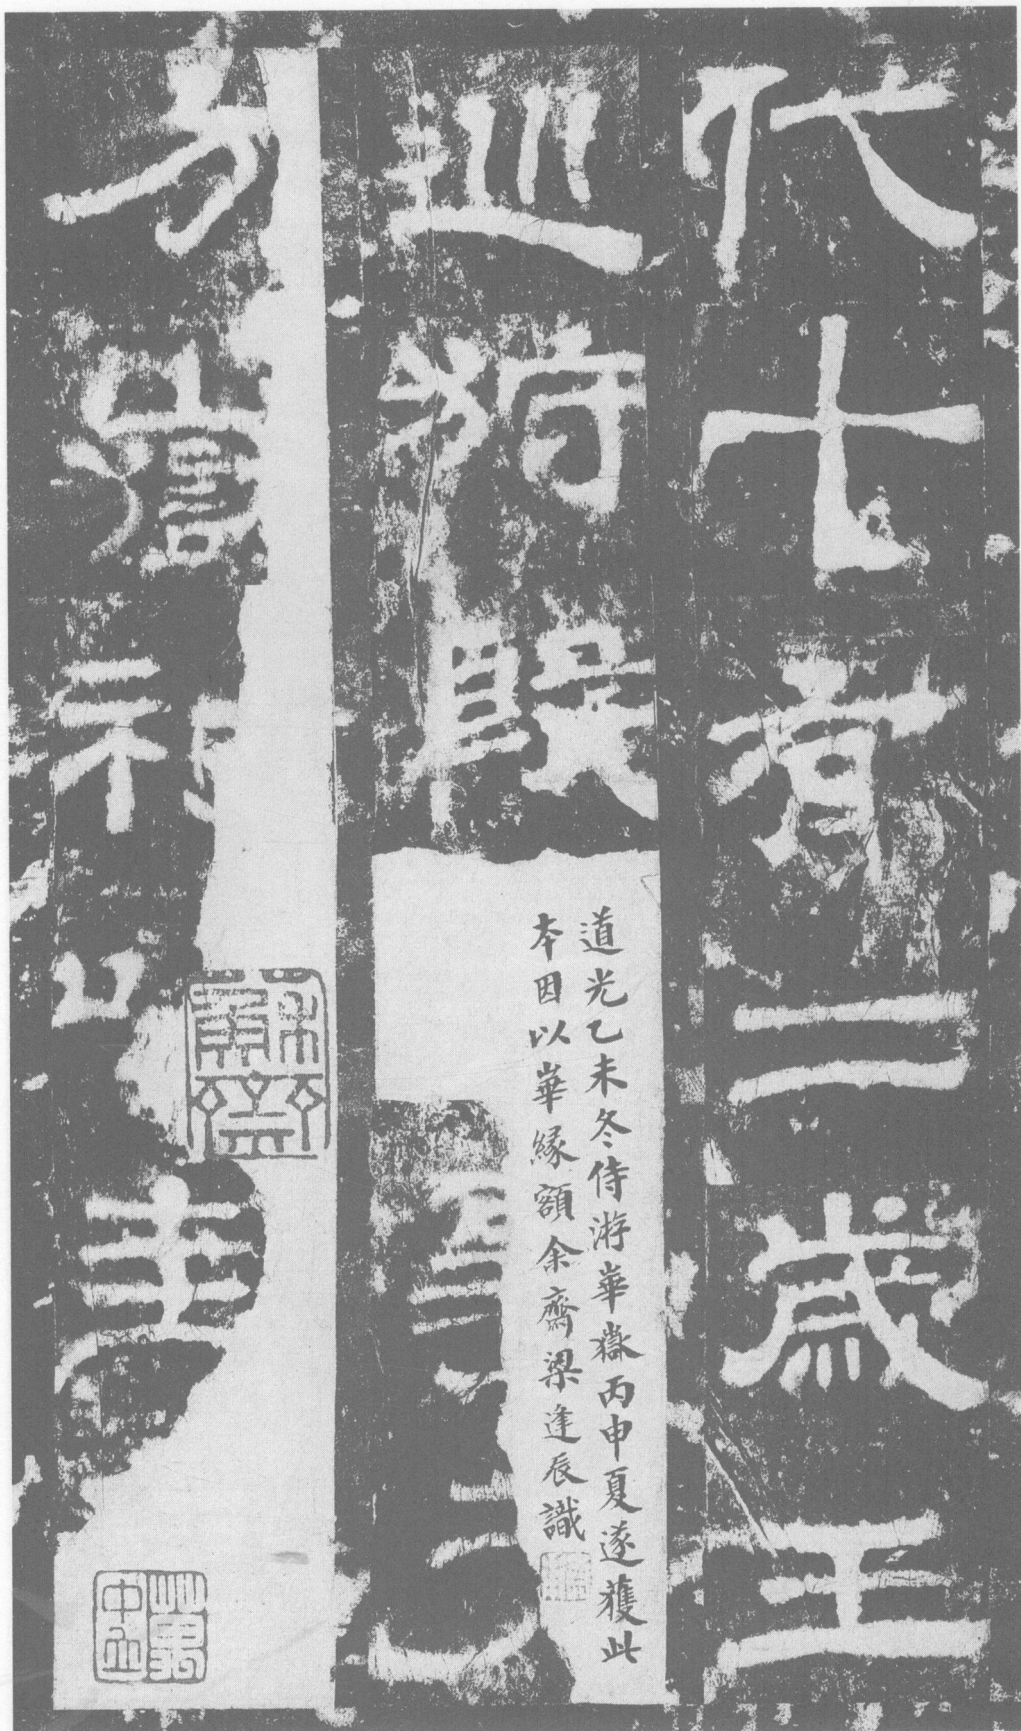 代十有二歲王
巡狩殷事于
道光乙未冬侍游華嶽丙申夏遂獲此
本因以崋緣額余齋梁逢辰識
方嶽祀以圭
蘇齋